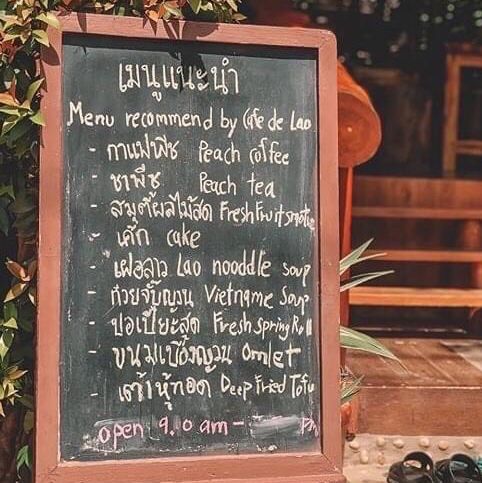 เมนูแนะนำ
Menu recommend by Cafe de Lao
- กาแฟพีช Peach coffee
- ชาพีช Peach tea
- สมูตตี้ผลไม้สด Fresh Fruit smootie
- เค้ก cake
- เฝอลาว Lao nooddle soup
- ก๋วยจั๊บญวน Vietname Soup
- ปอเปี๊ยะสด Fresh spring Roll
- ขนมเบื้องญวน Omlet
- เต้าหู้ทอด Deep Fried Tofu
open 9.0 am -